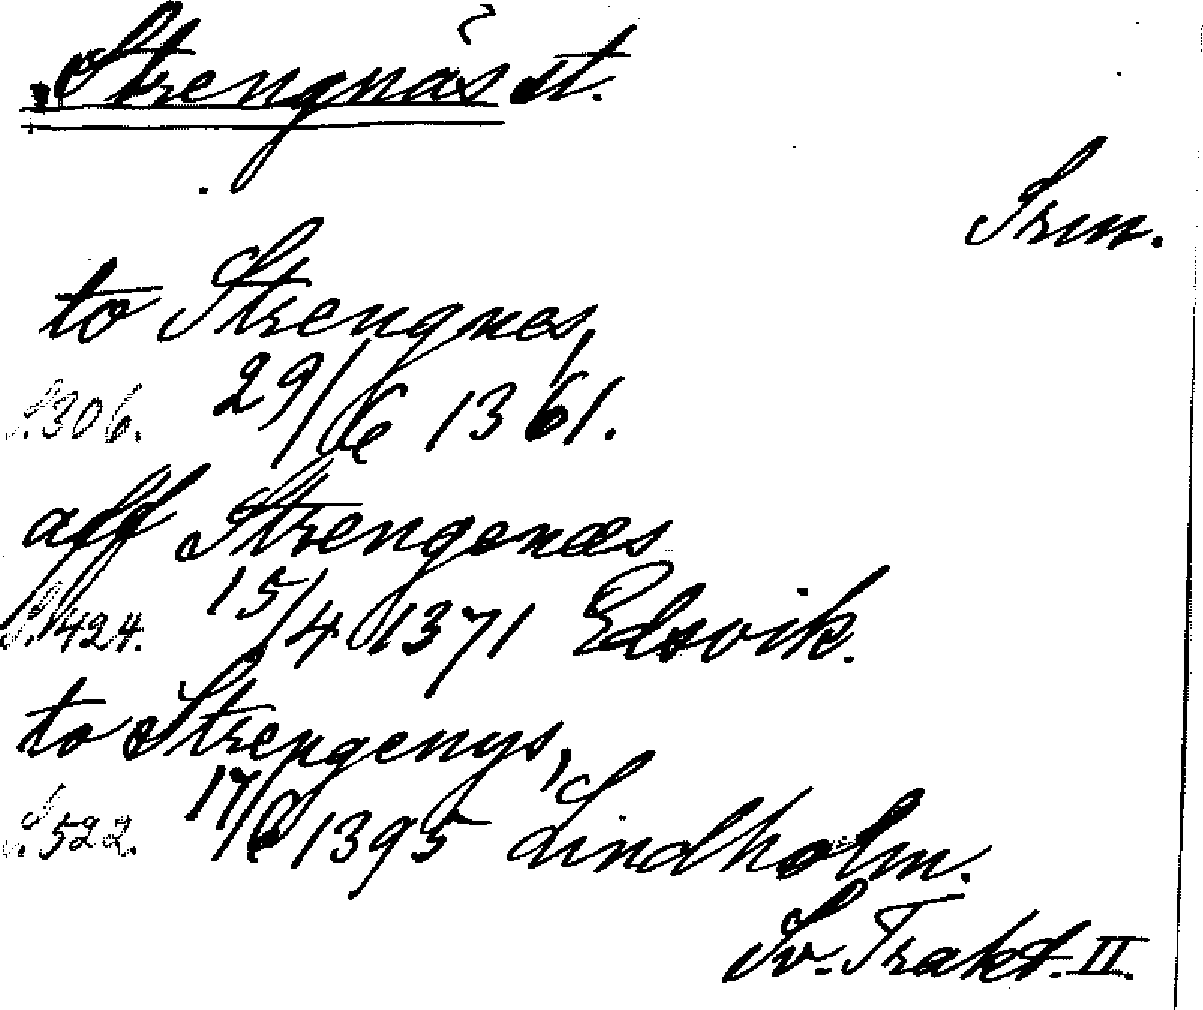 Strengnäs st.
Srm.
to Strengnes,
S. 306. 29/6 1361.
aff Strengenæs
S. 424. 15/4 1371 Edsvik.
to Strengenys,
S. 522. 17/6 1395 Lindholm.
Sv. Trakt. II.